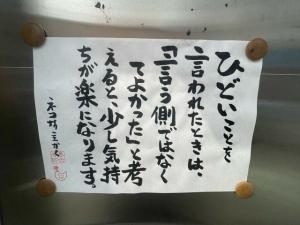 ひどいことを
言われたときは、
「言う側ではなく
てよかった」と考
えると、少し気持
ちが楽になります。